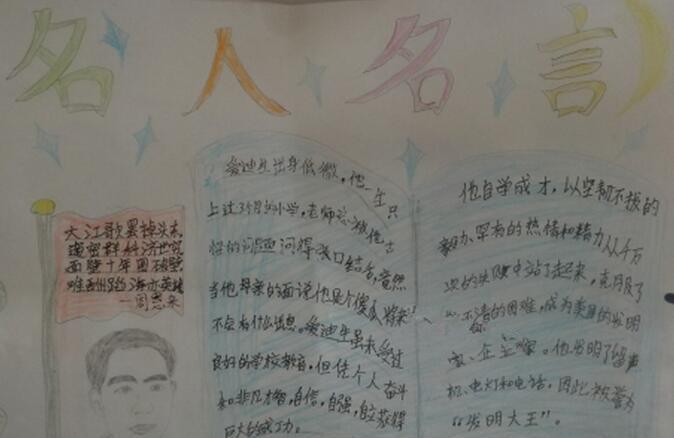 名人名言
大江歌罢掉头东
邃密群科济世穷
面壁十年图破壁
难酬蹈海亦英雄
—周恩来
爱迪生出身低微,他一生只
上过3个月的小学,老师总被他古
怪的问题问得张口结舌,竟然
当他母亲的面说他是个傻瓜将来
不会有什么出息。爱迪生虽未受过
良好的学校教育,但凭个人奋斗
和非凡才智,自信,自强,自立获得
巨大的成功。
他自学成才,以坚韧不拔的
毅力、罕有的热情和精力从千万
次的失败中站了起来,克服了
数不清的困难,成为美国的发明
家、企业家。他发明了留声
机、电灯和电话,因此被誉为
“发明大王”。